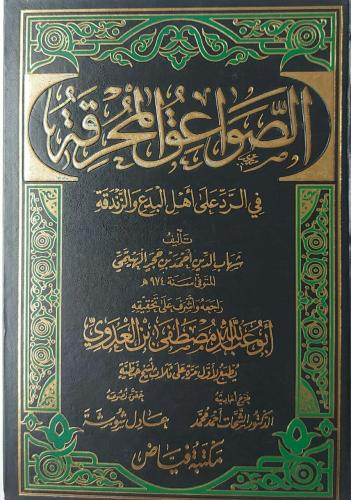 الصَّوَاعِقُ المُحْرِقَةُ
في الرَّدِّ عَلى أَهْلِ البِدَعِ وَالزَّنْدَقَةِ
تأليف
شهاب الدين أحمد بن حجر الهيتمي
المتوفى سنة ٩٧٤ هـ
راجعه وأشرف على تحقيقه
أبو عبد الله مصطفى بن العدوي
يُطبع لأول مرة على ثلاث نسخ خطية
خرج أحاديثه
حقق نصوصه
الدكتور الشحات أحمد محمد
عادل شوشة
مكتبة فياض